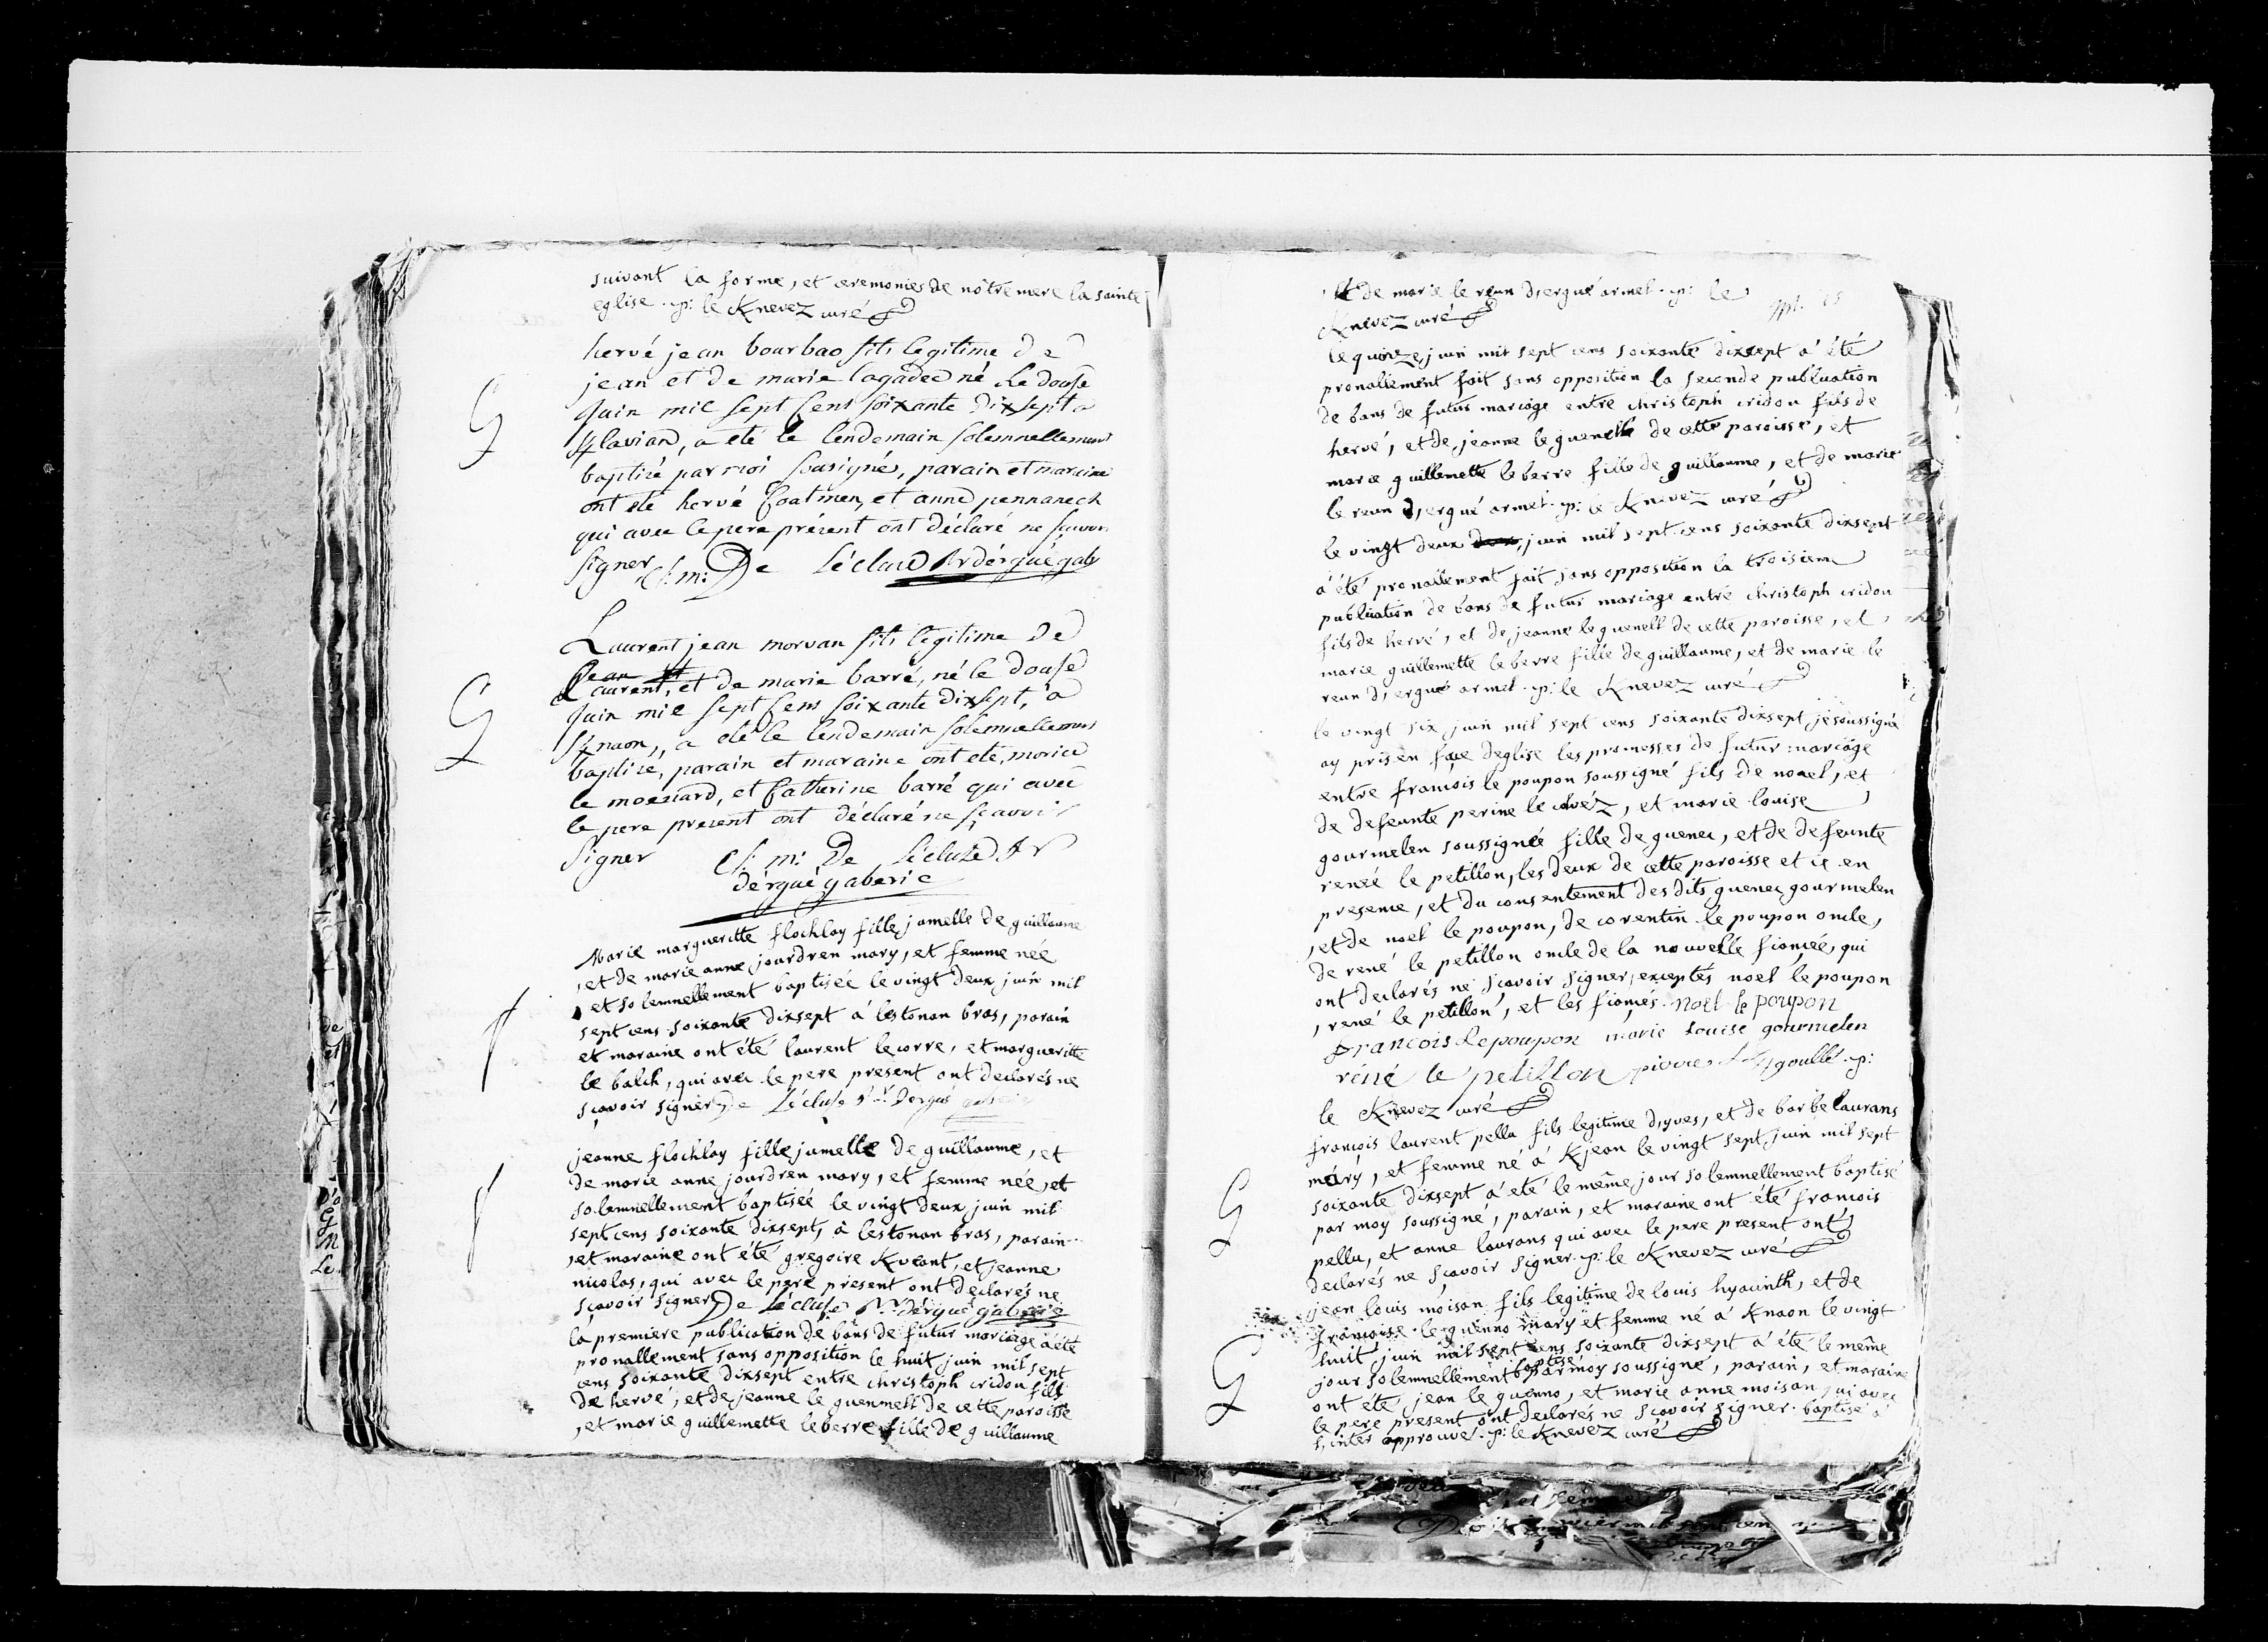 suivant la forme, et ceremonies de nôtre mere la sainte
eglise. p: le Knevez curé
hervé jean bourbao fils legitime de
jean et de marie lagadec né le douse
Juin mil sept cens soixante dixsept a
Klavian, a été le lendemain solemnellement
baptizé par moi sousigné, parain et maraine
ont été hervé Coatmen, et anne pennanech
qui avec le pere présent ont déclaré ne scavoir
signer cl: m: De Lécluse Rr d'érgué gab
Laurent jean morvan fils legitime de
Laurent, et de marie barré, né le douse
Juin mil sept cens soixante dixsept, à
Knaon, a été le lendemain solemnellement
baptizé, parain et maraine ont été, morice
le moennard, et Catherine barré qui avec
le pere present ont déclaré ne scavoir
signer cl: m: De Lécluse Rr
d'érgué gaberic
Marie margueritte flochlay fille jumelle de guillaume
, et de marie anne jourdren mary, et femme née
, et solemnellement baptiséé le vingt deux juin mil
sept cens soixante dixsept à lestonan bras, parain
et maraine ont été laurent le corre, et margueritte
le balch, qui avec le pere present ont declarés ne
sçavoir signer De Lécluse Rr d'ergué gaberic
jeanne flochlay fille jumelle de guillaume, et
de marie anne jourdren mary, et femme née, et
solemnellement baptiséé le vingt deux juin mil
sept cens soixante dixsept, à lestonan bras, parain
, et maraine ont été gregoire Kveant, et jeanne
nicolas, qui avec le pere present ont declarés ne
sçavoir signer De Lécluse Rr d'érgué gaberic
la premiere publication de bans de futur mariage à été
pronallement sans opposition le huit juin mil sept
cens soixante dixsept entre christoph cridou fils
de hervé, et de jeanne le guenmelt de cette paroisse
, et marie guillemette le berre fille de guillaume
et de marie le reun d'ergué armel. p: le
Knevez curé
le quinze juin mil sept cens soixante dixsept à été
pronallement fait sans opposition la seconde publication
de bans de futur mariage entre christoph cridou fils de
hervé, et de jeanne le guenelt de cette paroisse, et
marie guillemette le berre fille de guillaume, et de marie
le reun d'ergué armel. p: le Knevez curé
le vingt deux juin mil sept cens soixante dixsept
à été pronallement fait sans opposition la troisieme
publication de bans de futur mariage entre christoph cridou
fils de hervé, et de jeanne le guenelt de cette paroisse, et
marie guillemette le berre fille de guillaume, et de marie le
reun d'ergué armel. p: le Knevez curé
le vingt six juin mil sept cens soixante dixsept je soussigné
ay pris en face d'eglise les promesses de futur mariage
entre francois le poupon soussigné fils de nouel, et
de defeunte perine le, et marie louise
gourmelen soussignéé fille de guenec, et de defeunte
renéé le petillon, les deux de cette paroisse et ce en
presence, et du consentement des dits guenec gourmelen
, et de noel le poupon, de corentin le poupon oncle,
de rené le petillon oncle de la nouvelle fiancéé, qui
ont declarés ne sçavoir signer, exceptés noel le poupon
, rené le petillon, et les fiancés. noel le poupon
francois Le poupon marie Louise gourmelen
réné le petillon pierre goullé. p:
le Knevez curé
francois laurent pellu fils legitime d'yves, et de barbe laurans
mary, et femme né à Kjean le vingt sept juin mil sept
soixante dixsept à été le même jour solemnellement baptisé
par moy soussigné, parain, et maraine ont été francois
pellu, et anne laurans qui avec le pere present ont
declarés ne sçavoir signer. p: le Knevez curé
jean louis moison fils legitime de louis hyacinth, et de
francoise le guenno mary et femme né à Knaon le vingt
huit juin mil sept cens soixante dixsept à été le même
jour solemnellement baptisé par moy soussigné, parain, et maraine
ont été jean le guenno, et marie anne moison qui avec
le pere present ont declarés ne sçavoir signer. baptisé à
l'inter approuvé. p: le Knevez curé